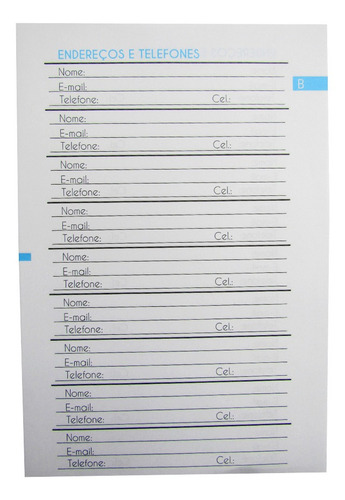 ENDEREÇOS E TELEFONES
Nome:
B
E-mail:
Telefone: Cel.:
Nome:
E-mail:
Telefone: Cel.:
Nome:
E-mail:
Telefone: Cel.:
Nome:
E-mail:
Telefone: Cel.:
Nome:
E-mail:
Telefone: Cel.:
Nome:
E-mail:
Telefone: Cel.:
Nome:
E-mail:
Telefone: Cel.:
Nome:
E-mail:
Telefone: Cel.:
Nome:
E-mail:
Telefone: Cel.: